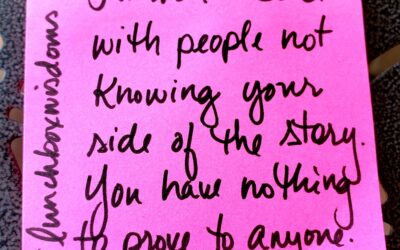 with people not
knowing your
side of the story.
You have nothing
to prove to anyone.
lunchboxwisdoms